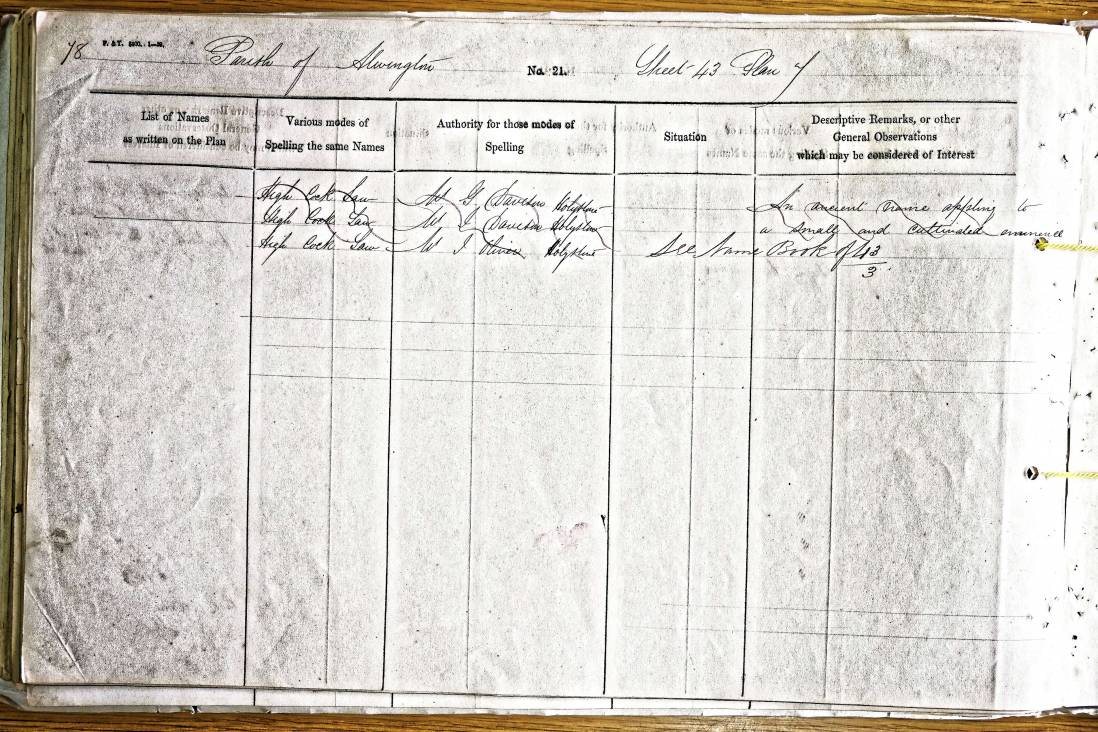 78 Parish of Alwington No. 21. Sheet 43 Plan 7
List of Names
as written on the Plan
Various modes of
Spelling the same Names
Authority for those modes of
Spelling
Situation
Descriptive Remarks, or other
General Observations
which may be considered of Interest
High Cock Law Mr G. Davison Holystone An ancient name applying to
High Cock Law Mr J Davison Holystone a small and cultivated eminence
High Cock Law Mr J Oliver Holystone See Name Book of 43/3